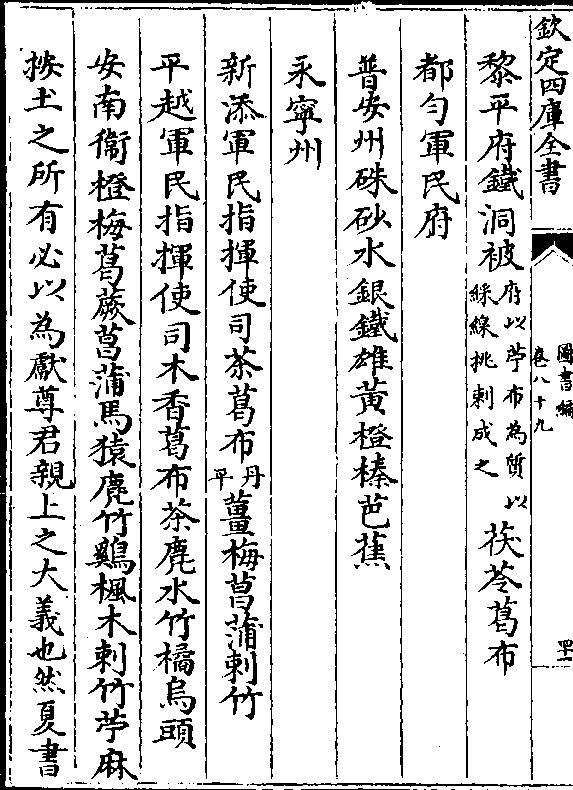 欽定四庫全書
圖書編
卷八十九
四十一
黎平府鐵洞被府以苧布為質以綵線挑刺成之茯苓葛布
都勻軍民府
普安州硃砂水銀鐵雄黃橙榛芭蕉
永寧州
新添軍民指揮使司茶葛布丹平薑梅菖蒲刺竹
平越軍民指揮使司木香葛布茶麂水竹橘烏頭
安南衞橙梅葛蕨菖蒲馬猿麂竹鷄楓木刺竹苧麻
按土之所有必以為獻尊君親上之大義也然夏書